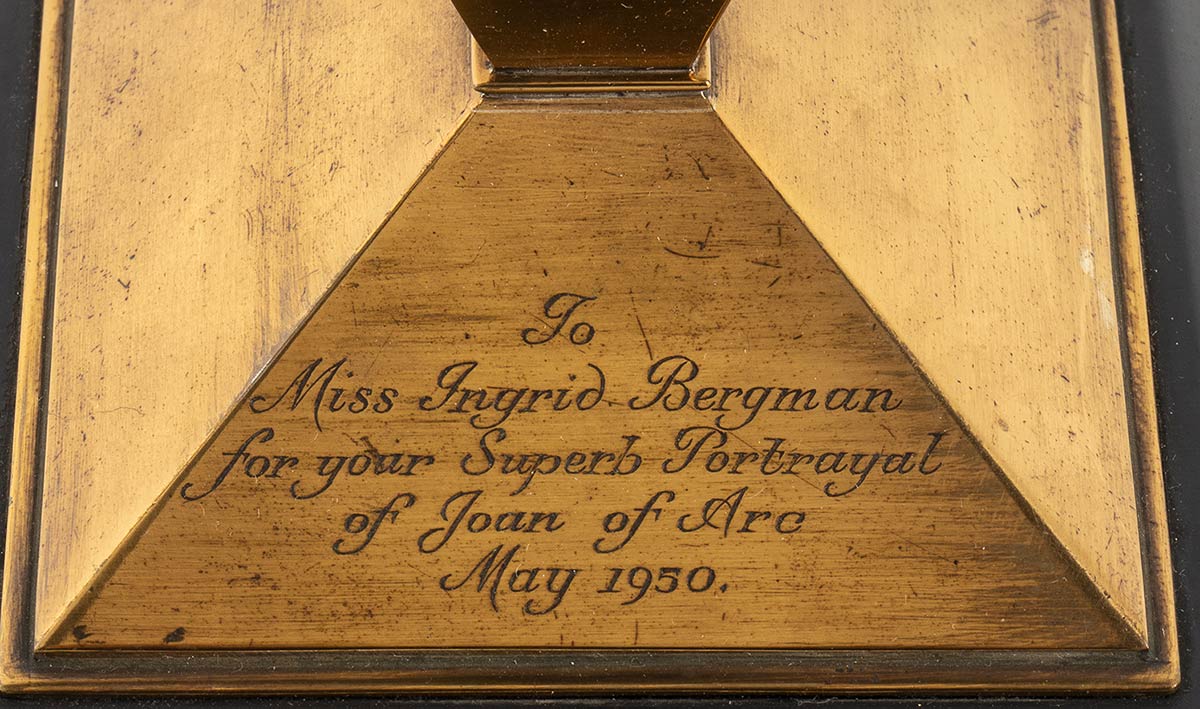 To
Miss Ingrid Bergman
for your Superb Portrayal
of Joan of Arc
May 1950.